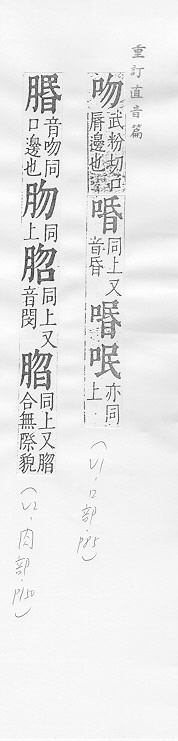 重訂直音篇
吻武粉切口脣邊也㖧同上又音昏㗃呡亦同上
(V1、口部、P85)
音吻同口邊也肳同上同上又音閔脗同上又脗合無際貌
(V2、肉部、P150)